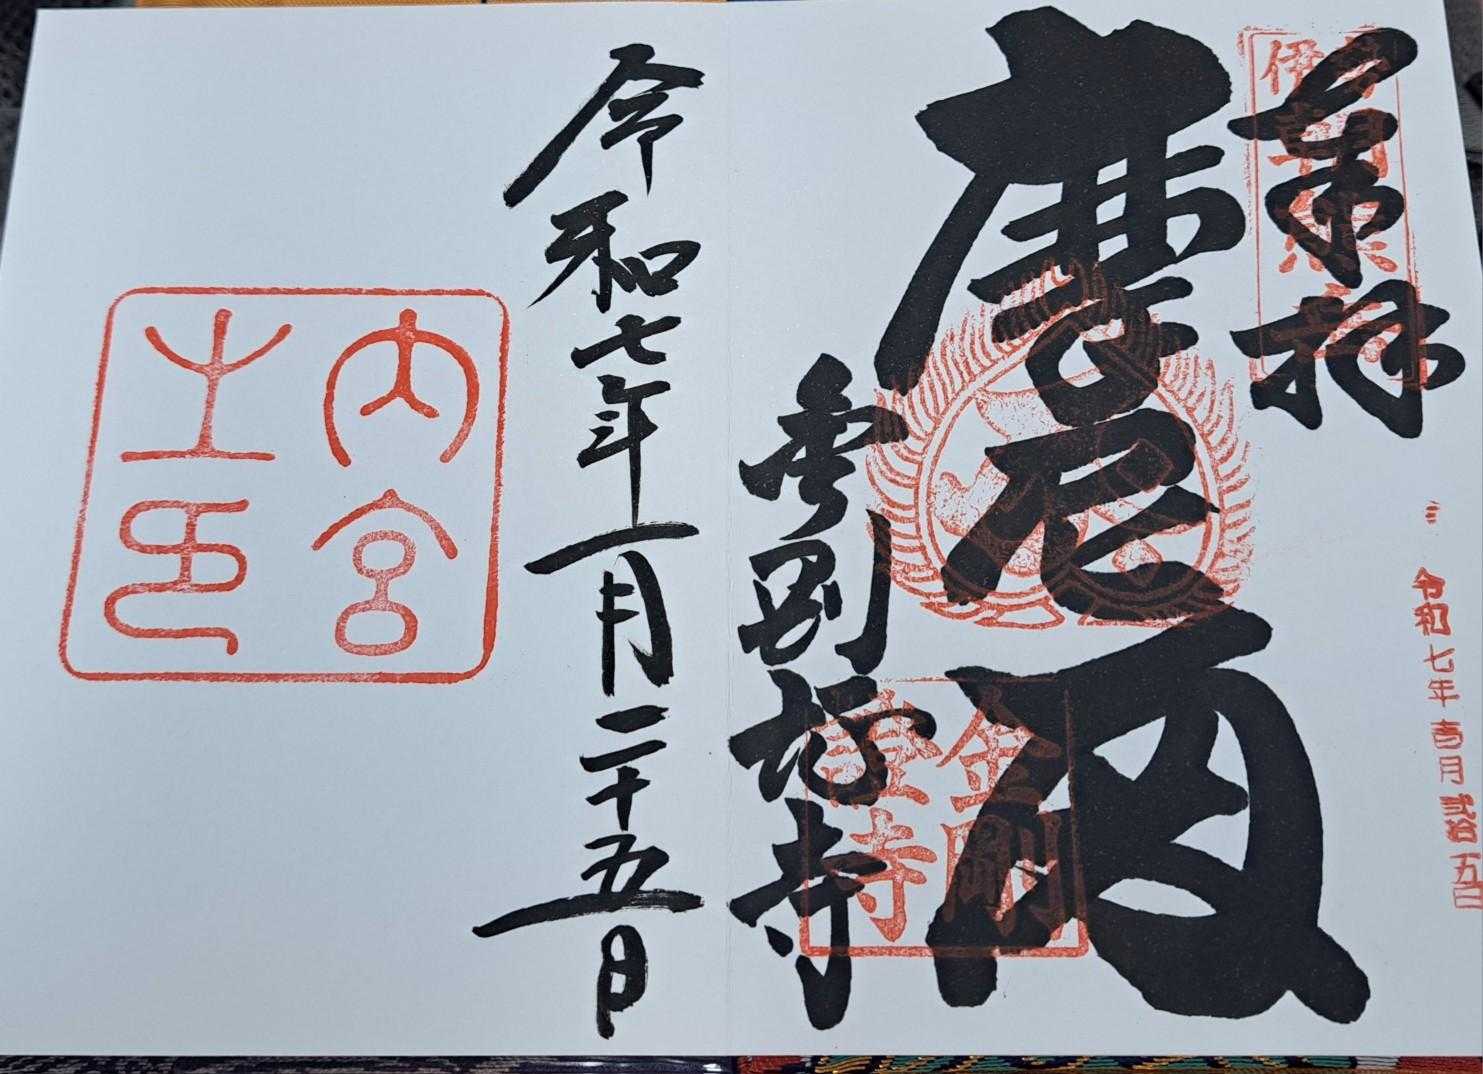 奉拝
令和七年壱月弐拾五日
摩尼
金剛證寺
金剛
證寺
令和七年一月二十五日
内宮
之印